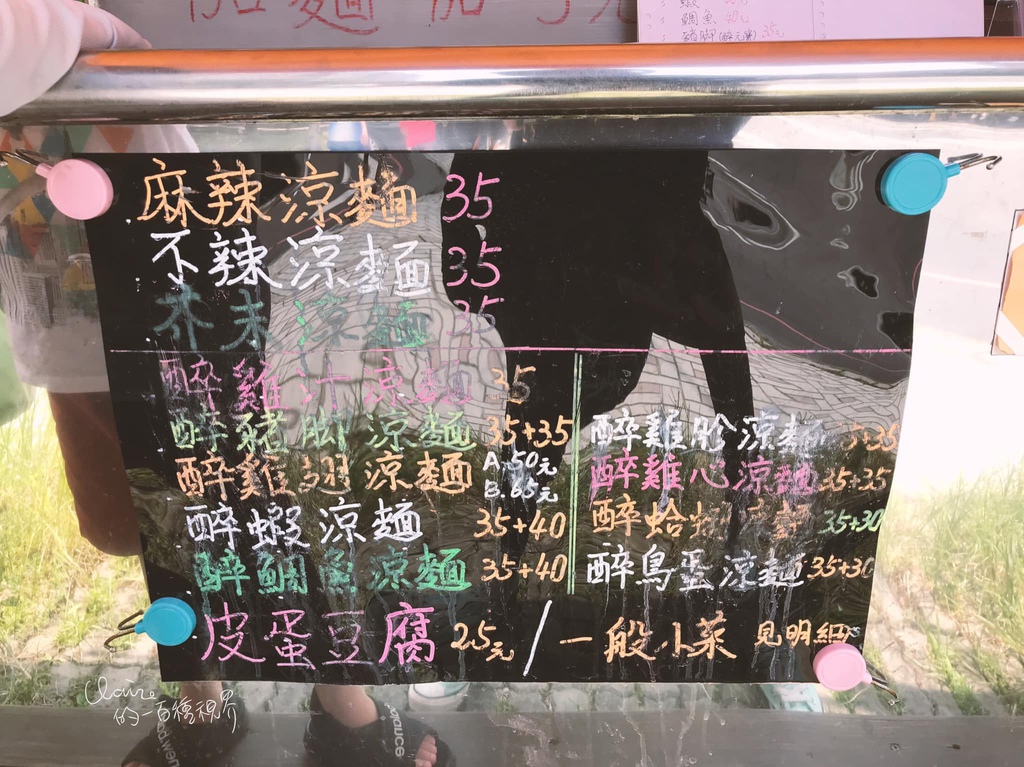 加麵加
蝦
鯛魚 40元
豬腳
麻辣涼麵 35
不辣涼麵 35
芥末涼麵 35
醉雞汁涼麵 35
醉豬腳涼麵 35+35
醉雞翅涼麵 A.50元 B.65元
醉蝦涼麵 35+40
醉鯛魚涼麵 35+40
醉雞胗涼麵 35+35
醉雞心涼麵 35+35
醉蛤蜊涼麵 35+30
醉鳥蛋涼麵 35+30
皮蛋豆腐 25元 / 一般小菜 見明細
Claire
的一百種視界